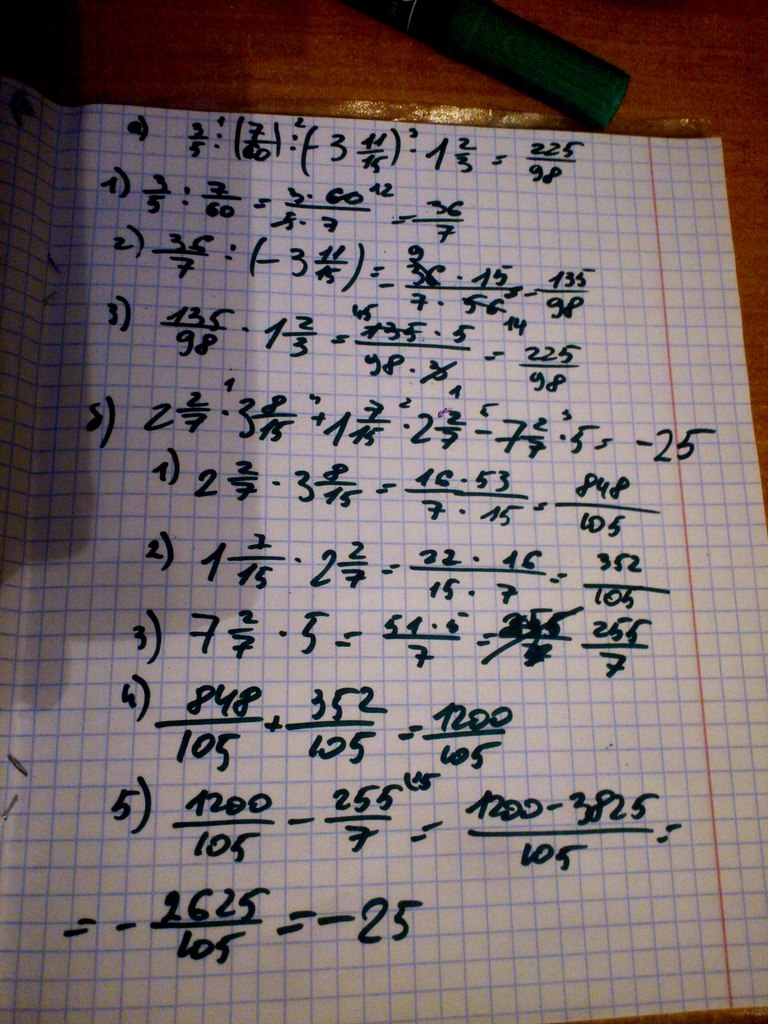 а) 3/5 :¹ (7/60) :² (-3 11/15) ·³ 1 2/3 = 225/98
1) 3/5 : 7/60 = 3 · 60 12 / 5 · 7 = 36/7
2) 36/7 : (-3 11/15) = 9 36 · 15 / 7 · 56 14 = 135/98
3) 135/98 · 1 2/3 = 45 135 · 5 / 98 · 3 = 225/98
б) 2 2/7 ·¹ 3 8/15 +⁴ 1 7/15 ·² 2 2/7 -⁵ 7 2/7 ·³ 5 = -25
1) 2 2/7 · 3 8/15 = 16 · 53 / 7 · 15 = 848/105
2) 1 7/15 · 2 2/7 = 22 · 16 / 15 · 7 = 352/105
3) 7 2/7 · 5 = 51 · 5 / 7 = 255/7
4) 848/105 + 352/105 = 1200/105
5) 1200/105 - 255/7 (15 = 1200 - 3825 / 105 =
= - 2625/105 = -25